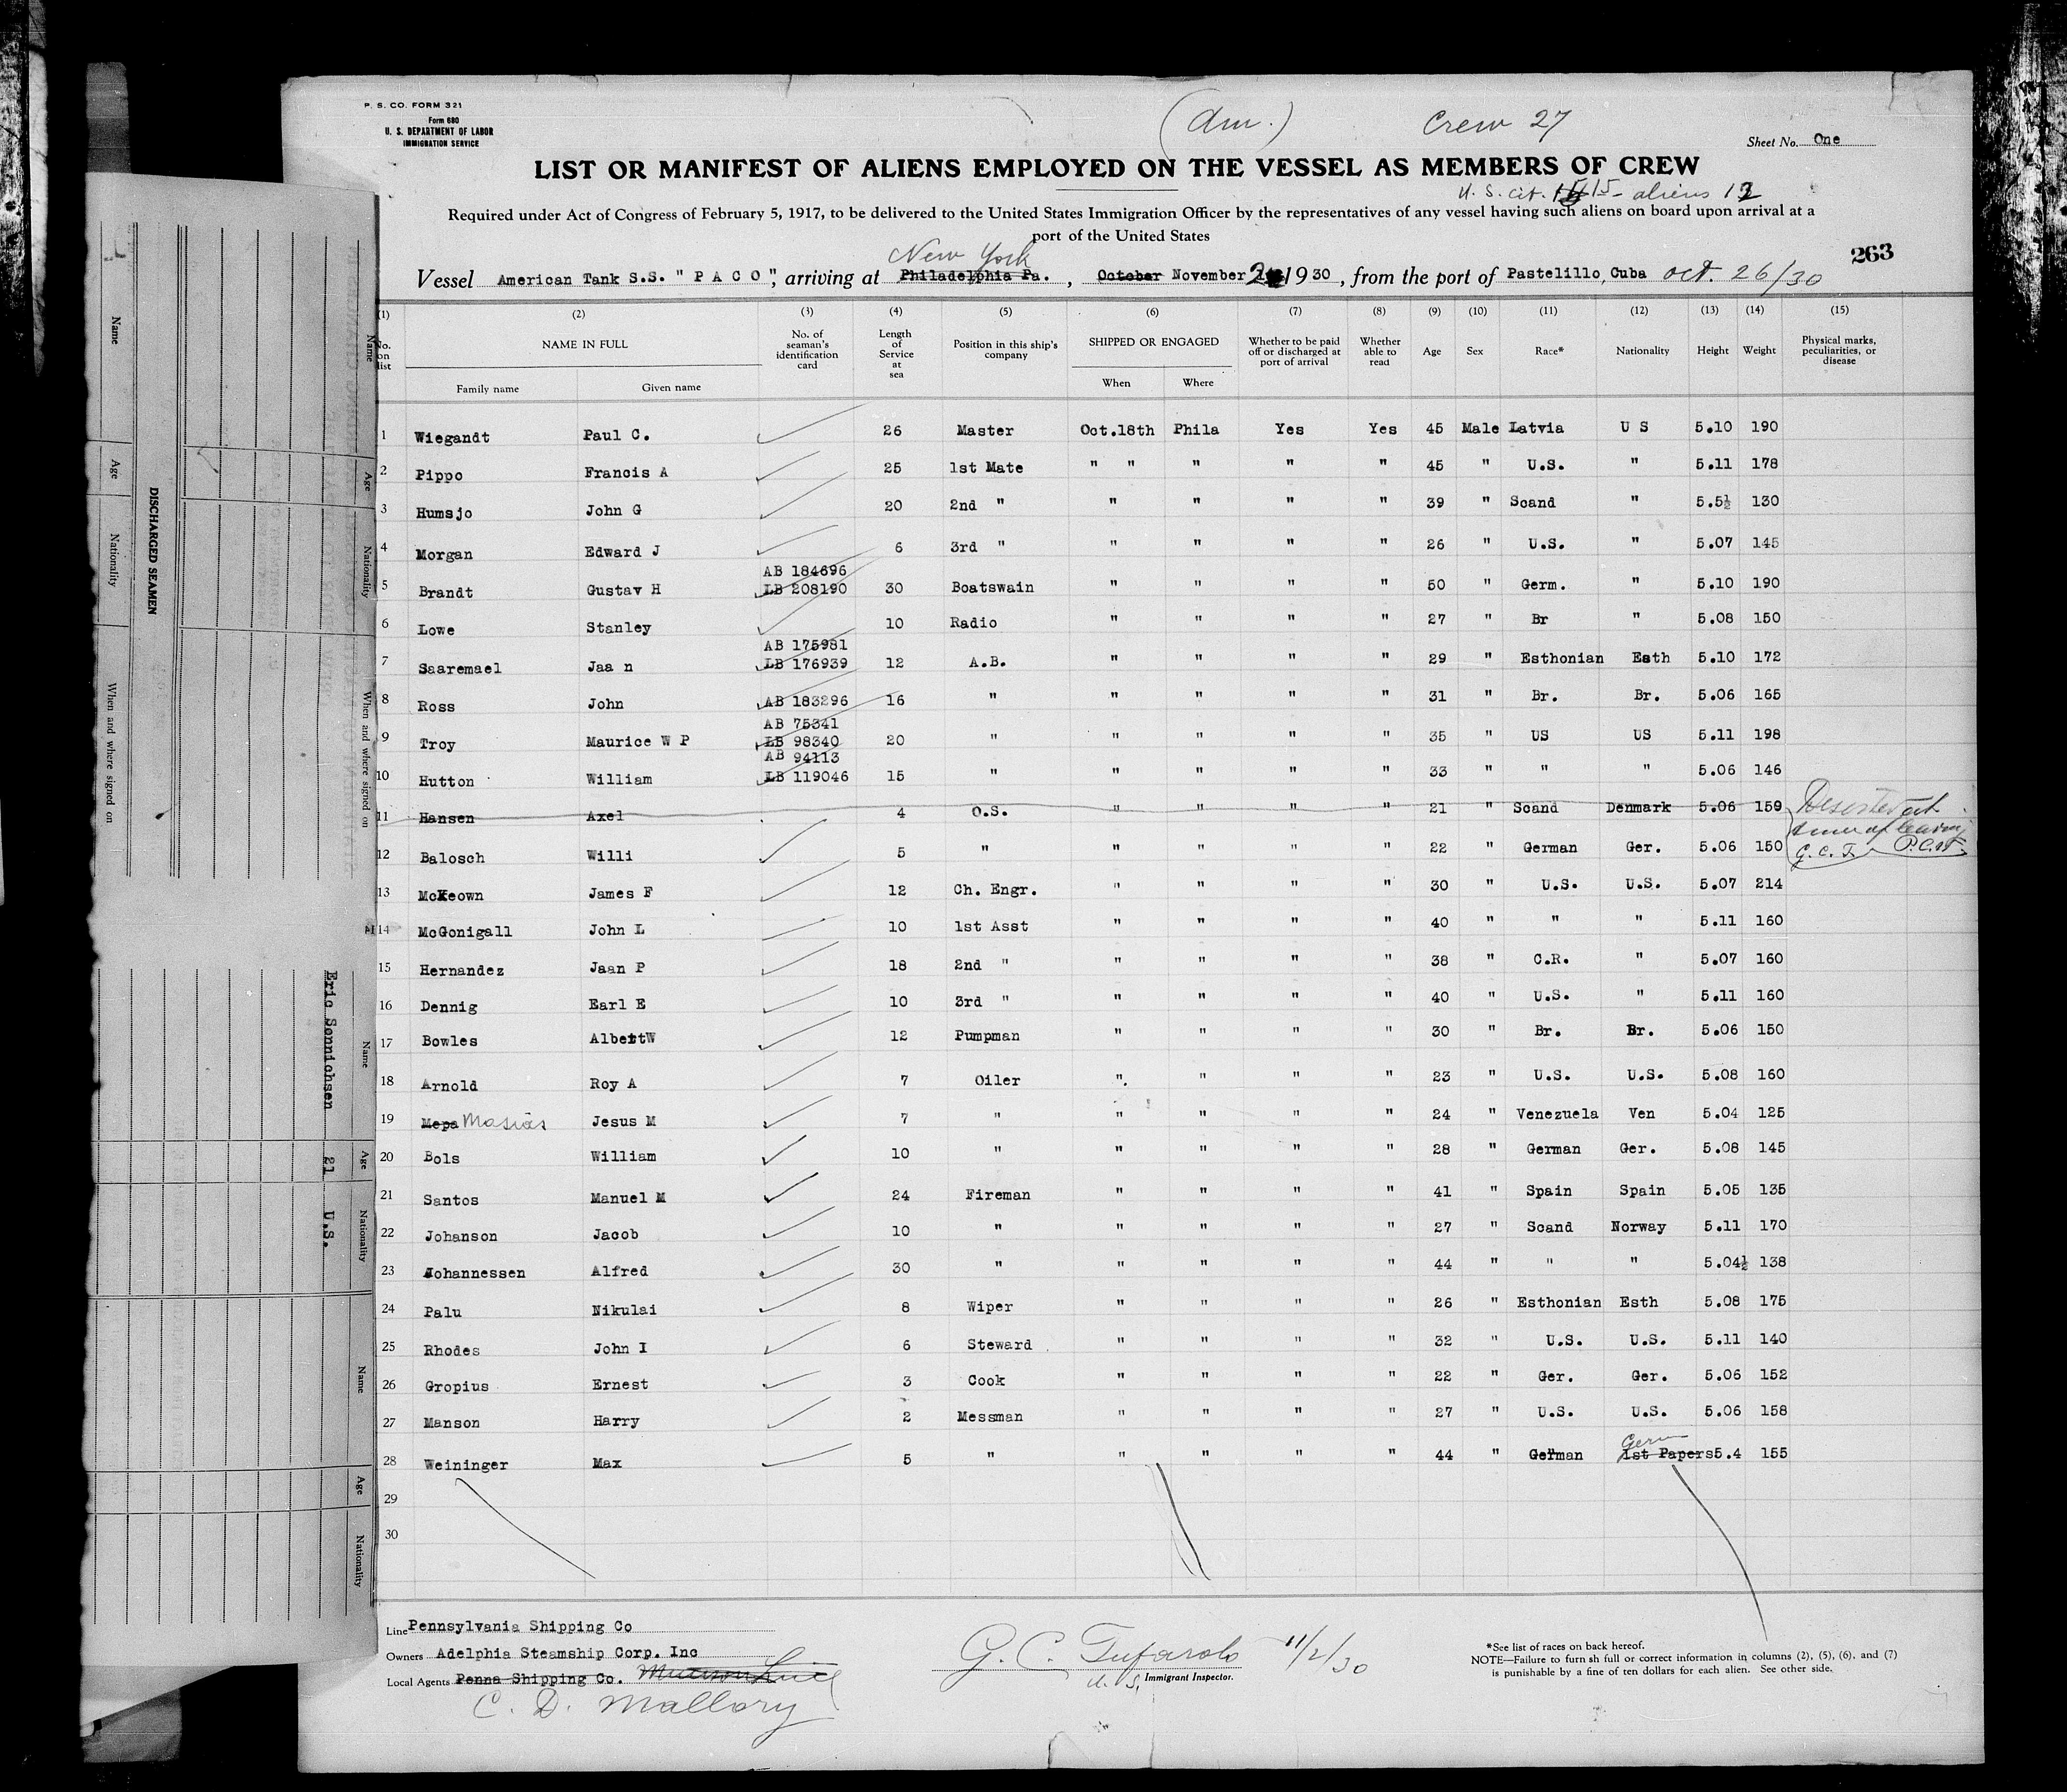 P. S. CO. FORM 321
Form 680
U. S. DEPARTMENT OF LABOR
IMMIGRATION SERVICE
(Am.)
Crew 27
Sheet No. One
LIST OR MANIFEST OF ALIENS EMPLOYED ON THE VESSEL AS MEMBERS OF CREW
U. S. cit. 15 - aliens 12
Required under Act of Congress of February 5, 1917, to be delivered to the United States Immigration Officer by the representatives of any vessel having such aliens on board upon arrival at a
port of the United States
263
New York
Vessel American Tank S.S. " P A C O ", arriving at Philadelphia Pa. , October November 2 1930 , from the port of Pastelillo, Cuba Oct. 26/30
(1) (2) (3) (4) (5) (6) (7) (8) (9) (10) (11) (12) (13) (14) (15)
No. on list NAME IN FULL No. of seaman's identification card Length of Service at sea Position in this ship's company SHIPPED OR ENGAGED Whether to be paid off or discharged at port of arrival Whether able to read Age Sex Race* Nationality Height Weight Physical marks, peculiarities, or disease
Family name Given name When Where
1 Wiegandt Paul C. 26 Master Oct.18th Phila Yes Yes 45 Male Latvia U S 5.10 190
2 Pippo Francis A 25 1st Mate " " " " " 45 " U.S. " 5.11 178
3 Humsjo John G 20 2nd " " " " " 39 " Scand " 5.5½ 130
4 Morgan Edward J 6 3rd " " " " " 26 " U.S. " 5.07 145
AB 184696
5 Brandt Gustav H LB 208190 30 Boatswain " " " " 50 " Germ. " 5.10 190
6 Lowe Stanley 10 Radio " " " " 27 " Br " 5.08 150
AB 175981
7 Saaremael Jaa n LB 176939 12 A.B. " " " " 29 " Esthonian Esth 5.10 172
8 Ross John AB 183296 16 " " " " " 31 " Br. Br. 5.06 165
AB 75341
9 Troy Maurice W P LB 98340 20 " " " " " 35 " US US 5.11 198
AB 94113
10 Hutton William LB 119046 15 " " " " " 33 " " " 5.06 146
11 Hansen Axel 4 O.S. " " " " 21 " Scand Denmark 5.06 159 Deserted at
time of leaving
12 Balosch Willi 5 " " " " " 22 " German Ger. 5.06 150 G. C. T. P.C.W.
13 McKeown James F 12 Ch. Engr. " " " " 30 " U.S. U.S. 5.07 214
14 McGonigall John L 10 1st Asst " " " " 40 " " " 5.11 160
15 Hernandez Jaan P 18 2nd " " " " " 38 " C.R. " 5.07 160
16 Dennig Earl E 10 3rd " " " " " 40 " U.S. " 5.11 160
17 Bowles AlbettW 12 Pumpman " " " " 30 " Br. Br. 5.06 150
18 Arnold Roy A 7 Oiler " " " " 23 " U.S. U.S. 5.08 160
19 Mepa Masias Jesus M 7 " " " " " 24 " Venezuela Ven 5.04 125
20 Bols William 10 " " " " " 28 " German Ger. 5.08 145
21 Santos Manuel M 24 Fireman " " " " 41 " Spain Spain 5.05 135
22 Johanson Jacob 10 " " " " " 27 " Scand Norway 5.11 170
23 Johannessen Alfred 30 " " " " " 44 " " " 5.04½ 138
24 Palu Nikulai 8 Wiper " " " " 26 " Esthonian Esth 5.08 175
25 Rhodes John I 6 Steward " " " " 32 " U.S. U.S. 5.11 140
26 Gropius Ernest 3 Cook " " " " 22 " Ger. Ger. 5.06 152
27 Manson Harry 2 Messman " " " " 27 " U.S. U.S. 5.06 158
Germ
28 Weininger Max 5 " " " " " 44 " German 1st Papers 5.4 155
29
30
Line Pennsylvania Shipping Co
Owners Adelphia Steamship Corp. Inc
Local Agents Penna Shipping Co. Munson Line
C. D. Mallory
G. C. Tufarolo 11/2/30
U. S. Immigrant Inspector.
*See list of races on back hereof.
NOTE—Failure to furn sh full or correct information in columns (2), (5), (6), and (7)
is punishable by a fine of ten dollars for each alien. See other side.
DISCHARGED SEAMEN
Name Age Nationality When and where signed on
Name Age Nationality When and where signed on
Name Age Nationality
Name Age Nationality
Eric Sonnichsen 21 U.S.